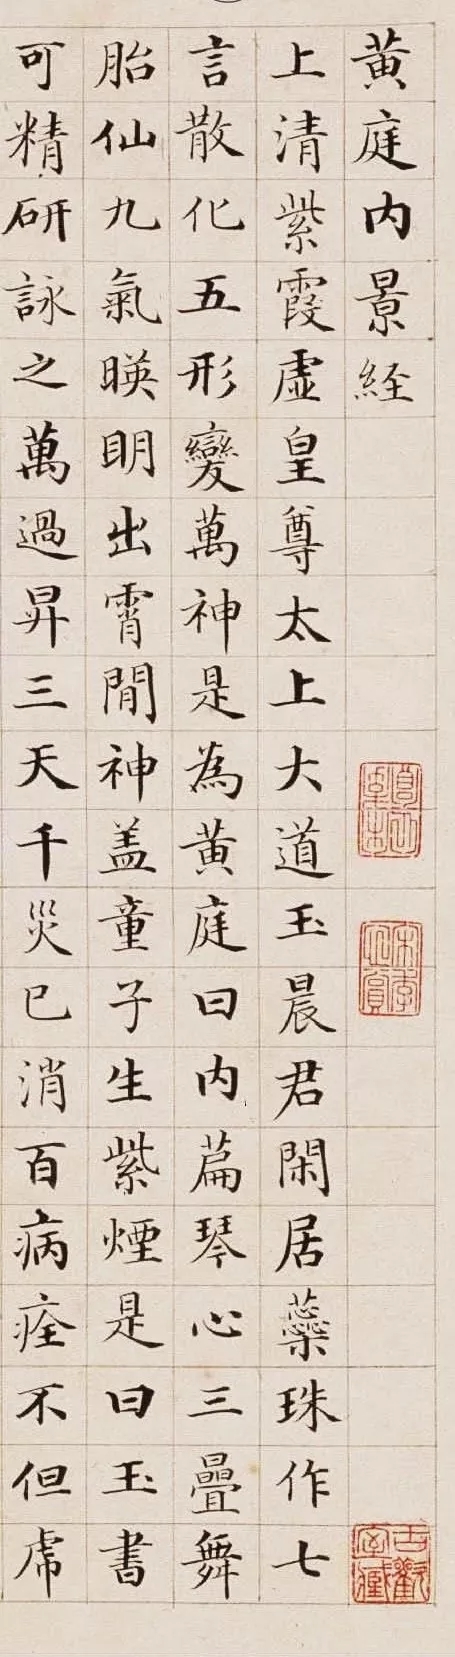 黄庭内景経
上清紫霞虚皇尊太上大道玉晨君閑居蘂珠作七
言散化五形變萬神是為黄庭曰内篇琴心三疊舞
胎仙九氣暎明出霄閒神盖童子生紫煙是曰玉書
可精研詠之萬過昇三天千災已消百病痊不但虎